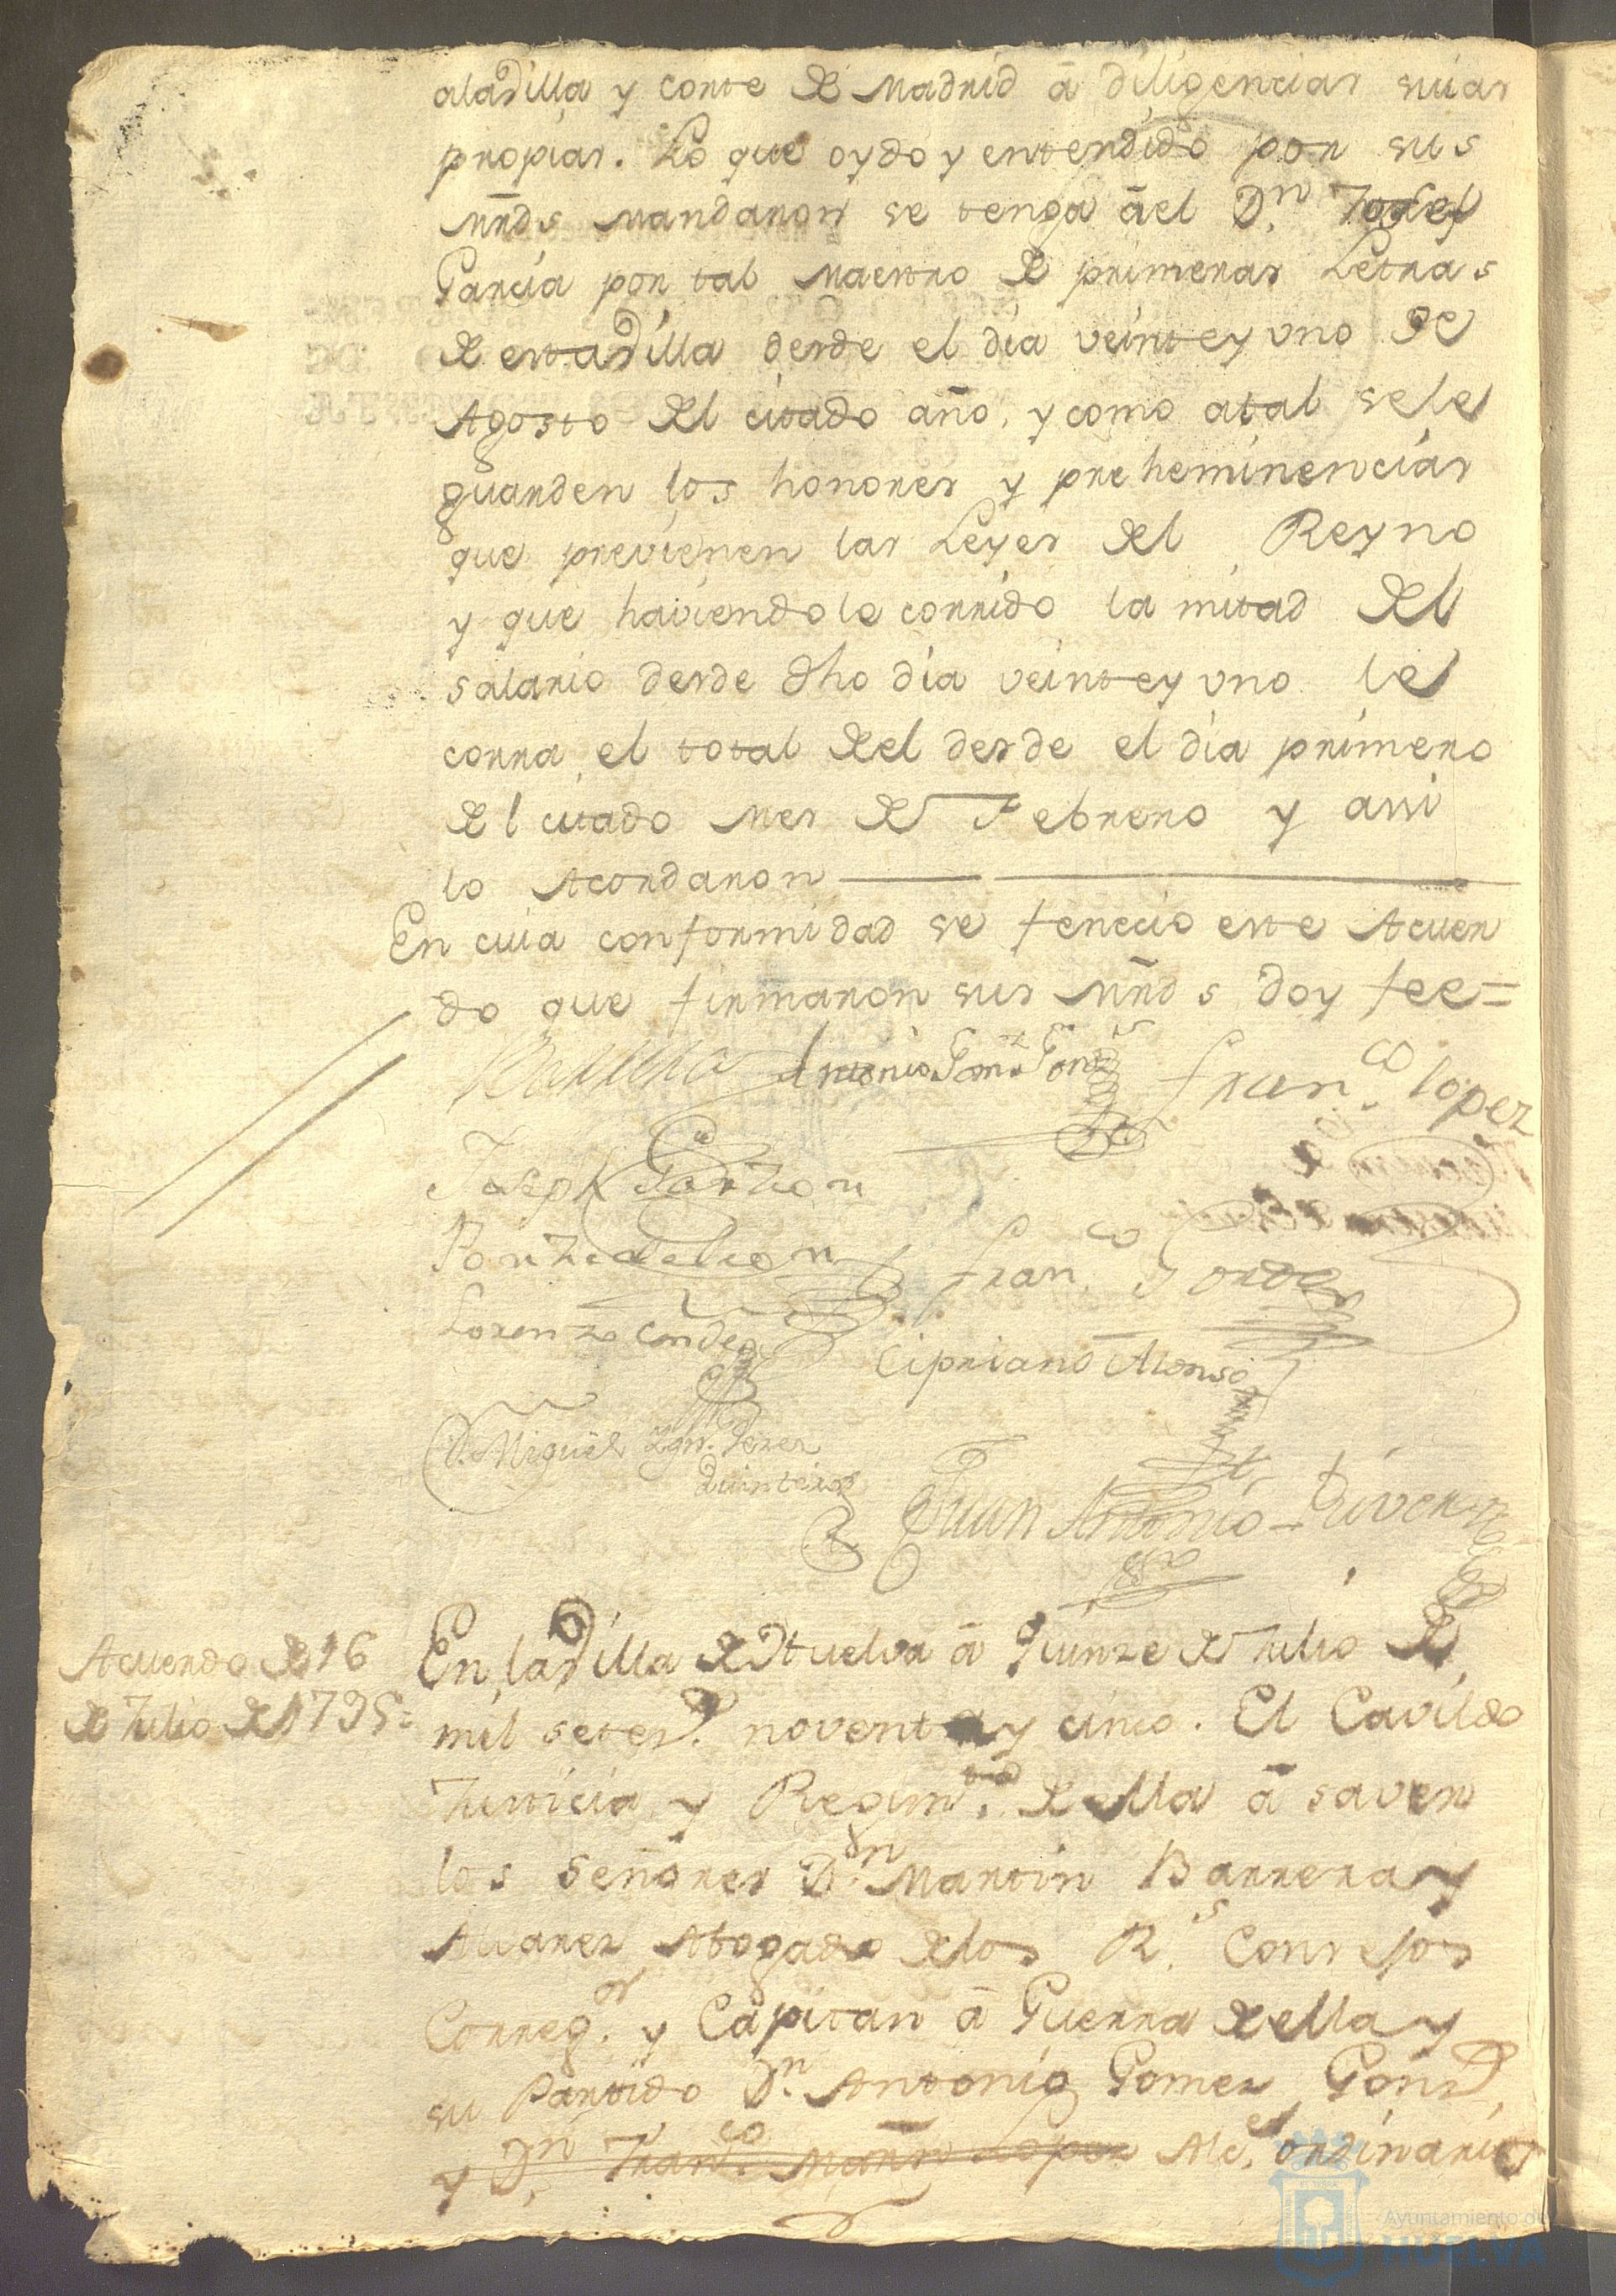 alavilla y corte de Madrid â diligencias suias
propias. Lo que oydo y entendido por sus
Mrds Mandaron se tenga âel Dn. Josef
Garcia por tal Maestro de primeras Letras
de estavilla desde el dia veinte y uno de
Agosto del citado año, y como atal sele
guarden los honores y preheminencias
que previenen las Leyes del Reyno
y que haviendole corrido la mitad del
salario desde dho dia veinte y uno le
corra el total del desde el dia primero
del citado Mes de Febrero y assi
lo Acordaron
En cuia conformidad se fenecio este Acuer
do que firmaron sus Mrds doy fee =
Barrera Antonio Gomz. Gonz Franco. lopez
Joseph Garzon
Ponze de leon Franco.
Lorenzo Conde
Cipriano Alonso
D. Miguel Ign. Perez
Quintero
Juan Antonio Rivera
Acuerdo de 16
de Julio de 1795=
En lavilla de Huelva â Quinze de Julio de
mil setes. noventa y cinco. El Cavildo
Justicia y Regimto. de ella â saver
los Señores Dn. Martin Barrera y
Alvarez Abogado de los Rs. Consejos
Correg.or y Capitan â Guerra de ella y
su Partido Dn. Antonio Gomez Gonz
y Dn. Franco. Marn Lopez Alc.es ordinarios
Ayuntamiento de
HUELVA